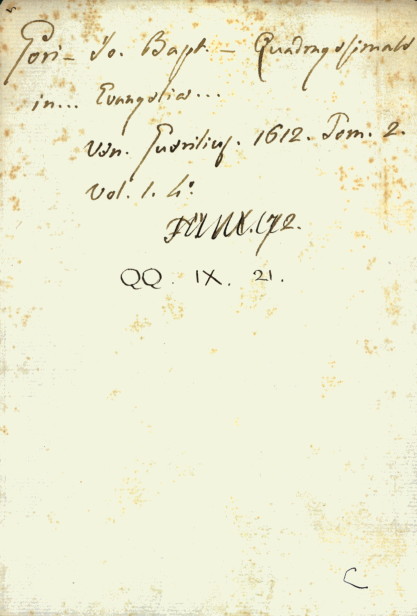 Gori - Jo. Bapt. - Quadragesimale
in... Evangelia...
Ven. Guerilius. 1612. Tom. 2.
Vol. 1. 4º
QQ. IX. 21.